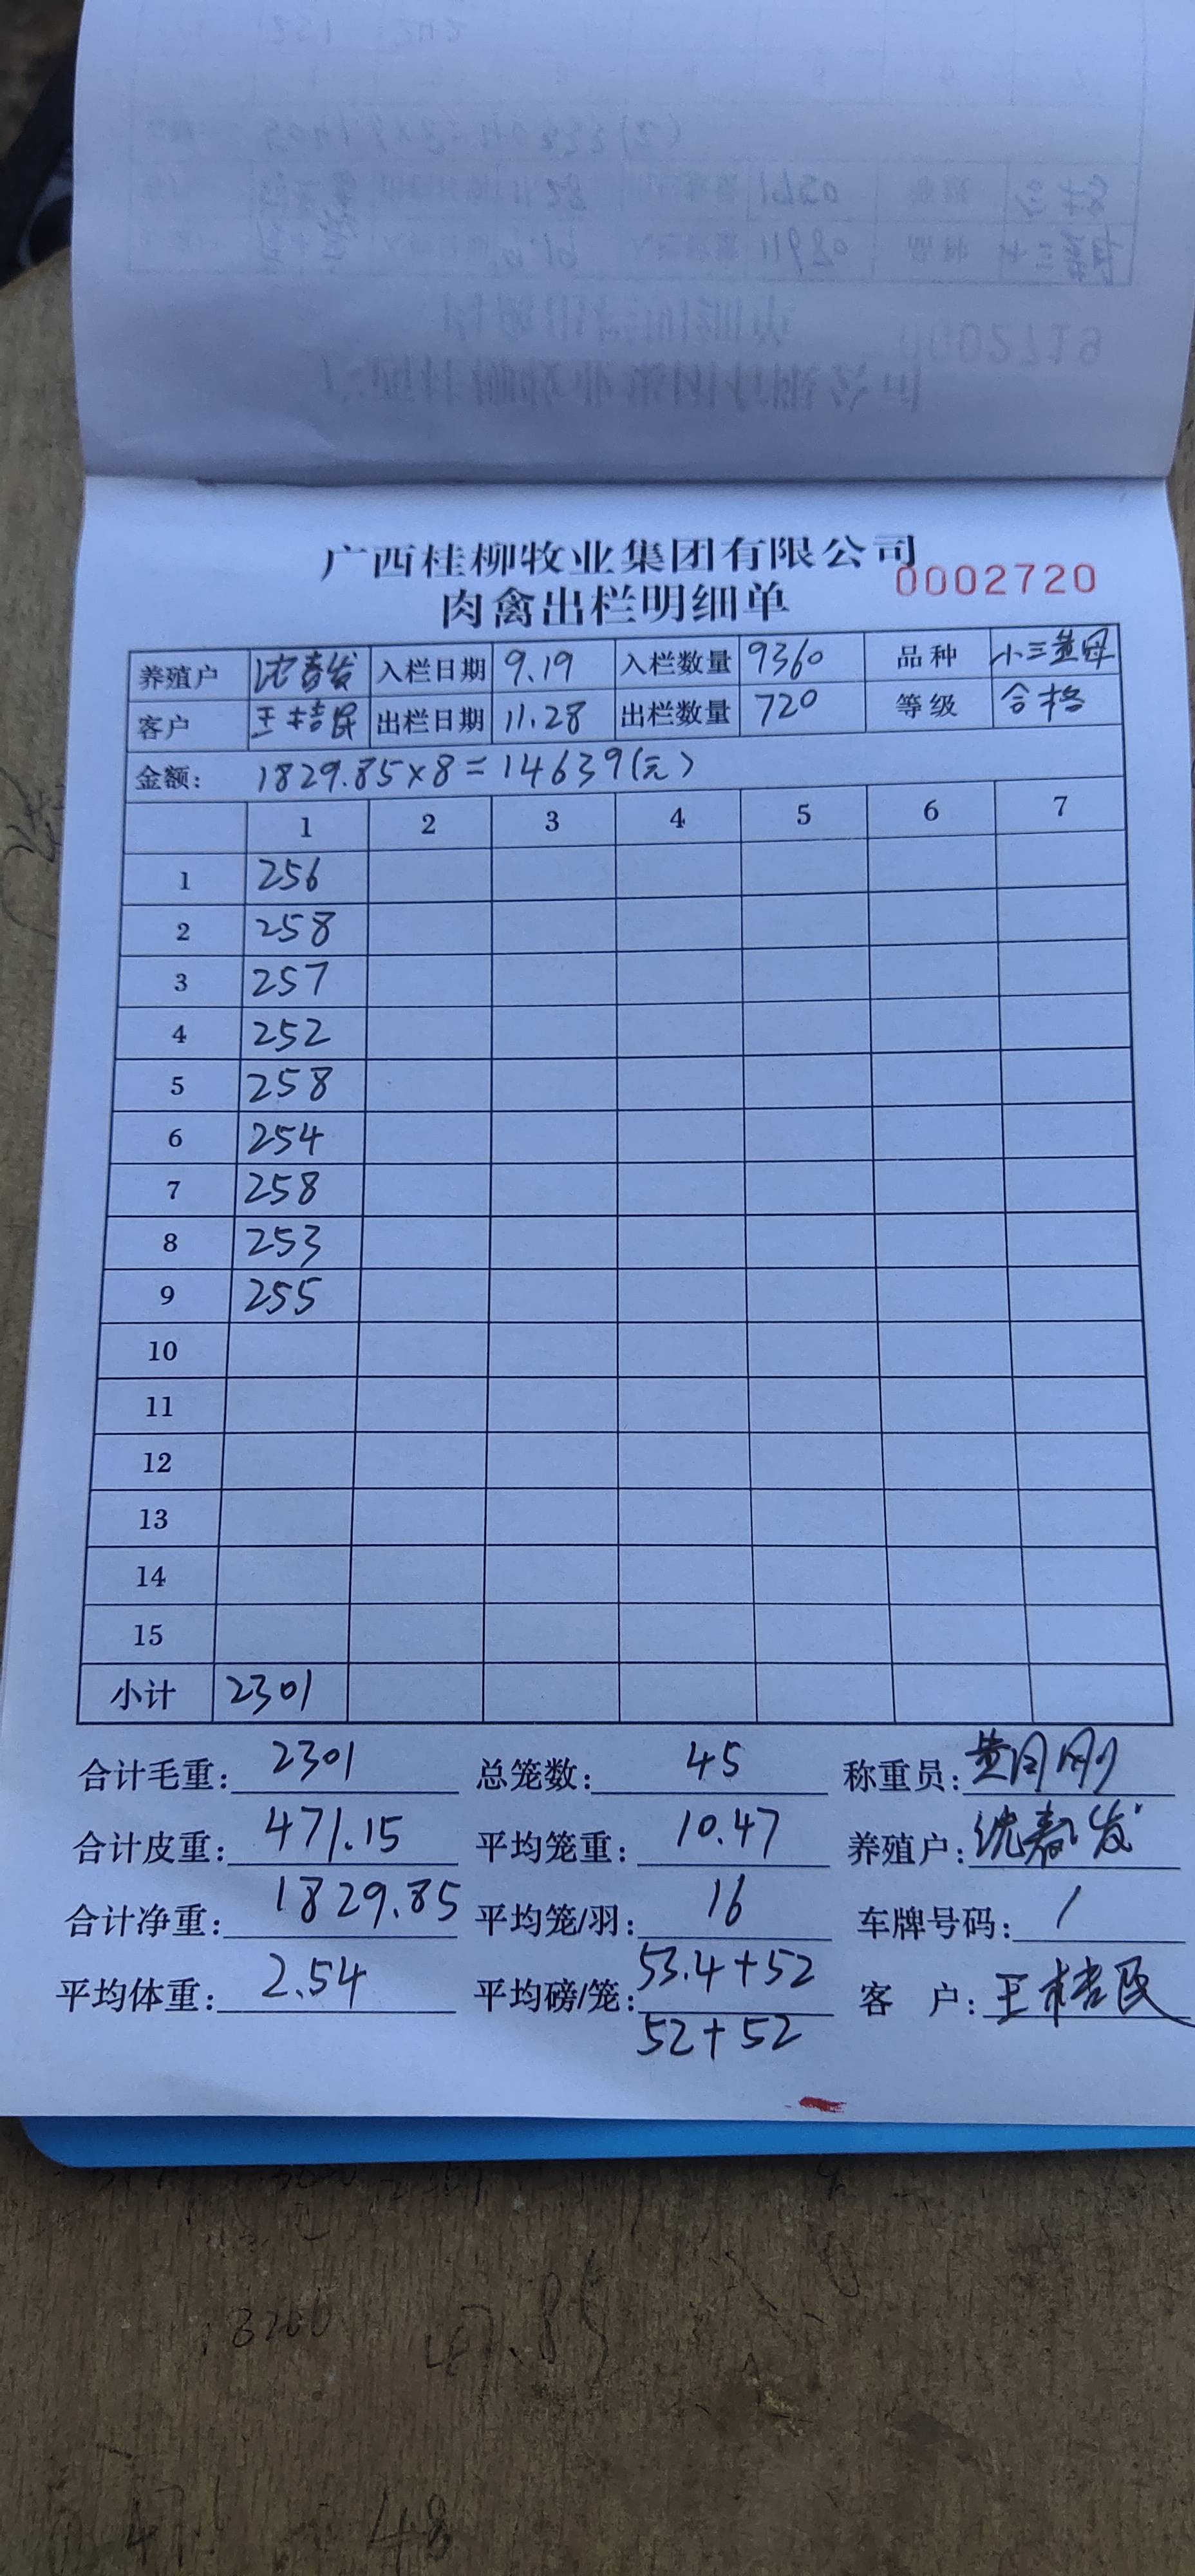 广西桂柳牧业集团有限公司
0002720
肉禽出栏明细单
养殖户 沈春发 入栏日期 9.19 入栏数量 9360 品种 小三黄母
客户 王桔民 出栏日期 11.28 出栏数量 720 等级 合格
金额: 1829.85×8=14639(元)
1 2 3 4 5 6 7
1 256
2 258
3 257
4 252
5 258
6 254
7 258
8 253
9 255
10
11
12
13
14
15
小计 2301
合计毛重: 2301 总笼数: 45 称重员:
合计皮重: 471.15 平均笼重: 10.47 养殖户: 沈春发
合计净重: 1829.85 平均笼/羽: 16 车牌号码: /
平均体重: 2.54 平均磅/笼: 53.4+52 客 户: 王桔民
52+52
48